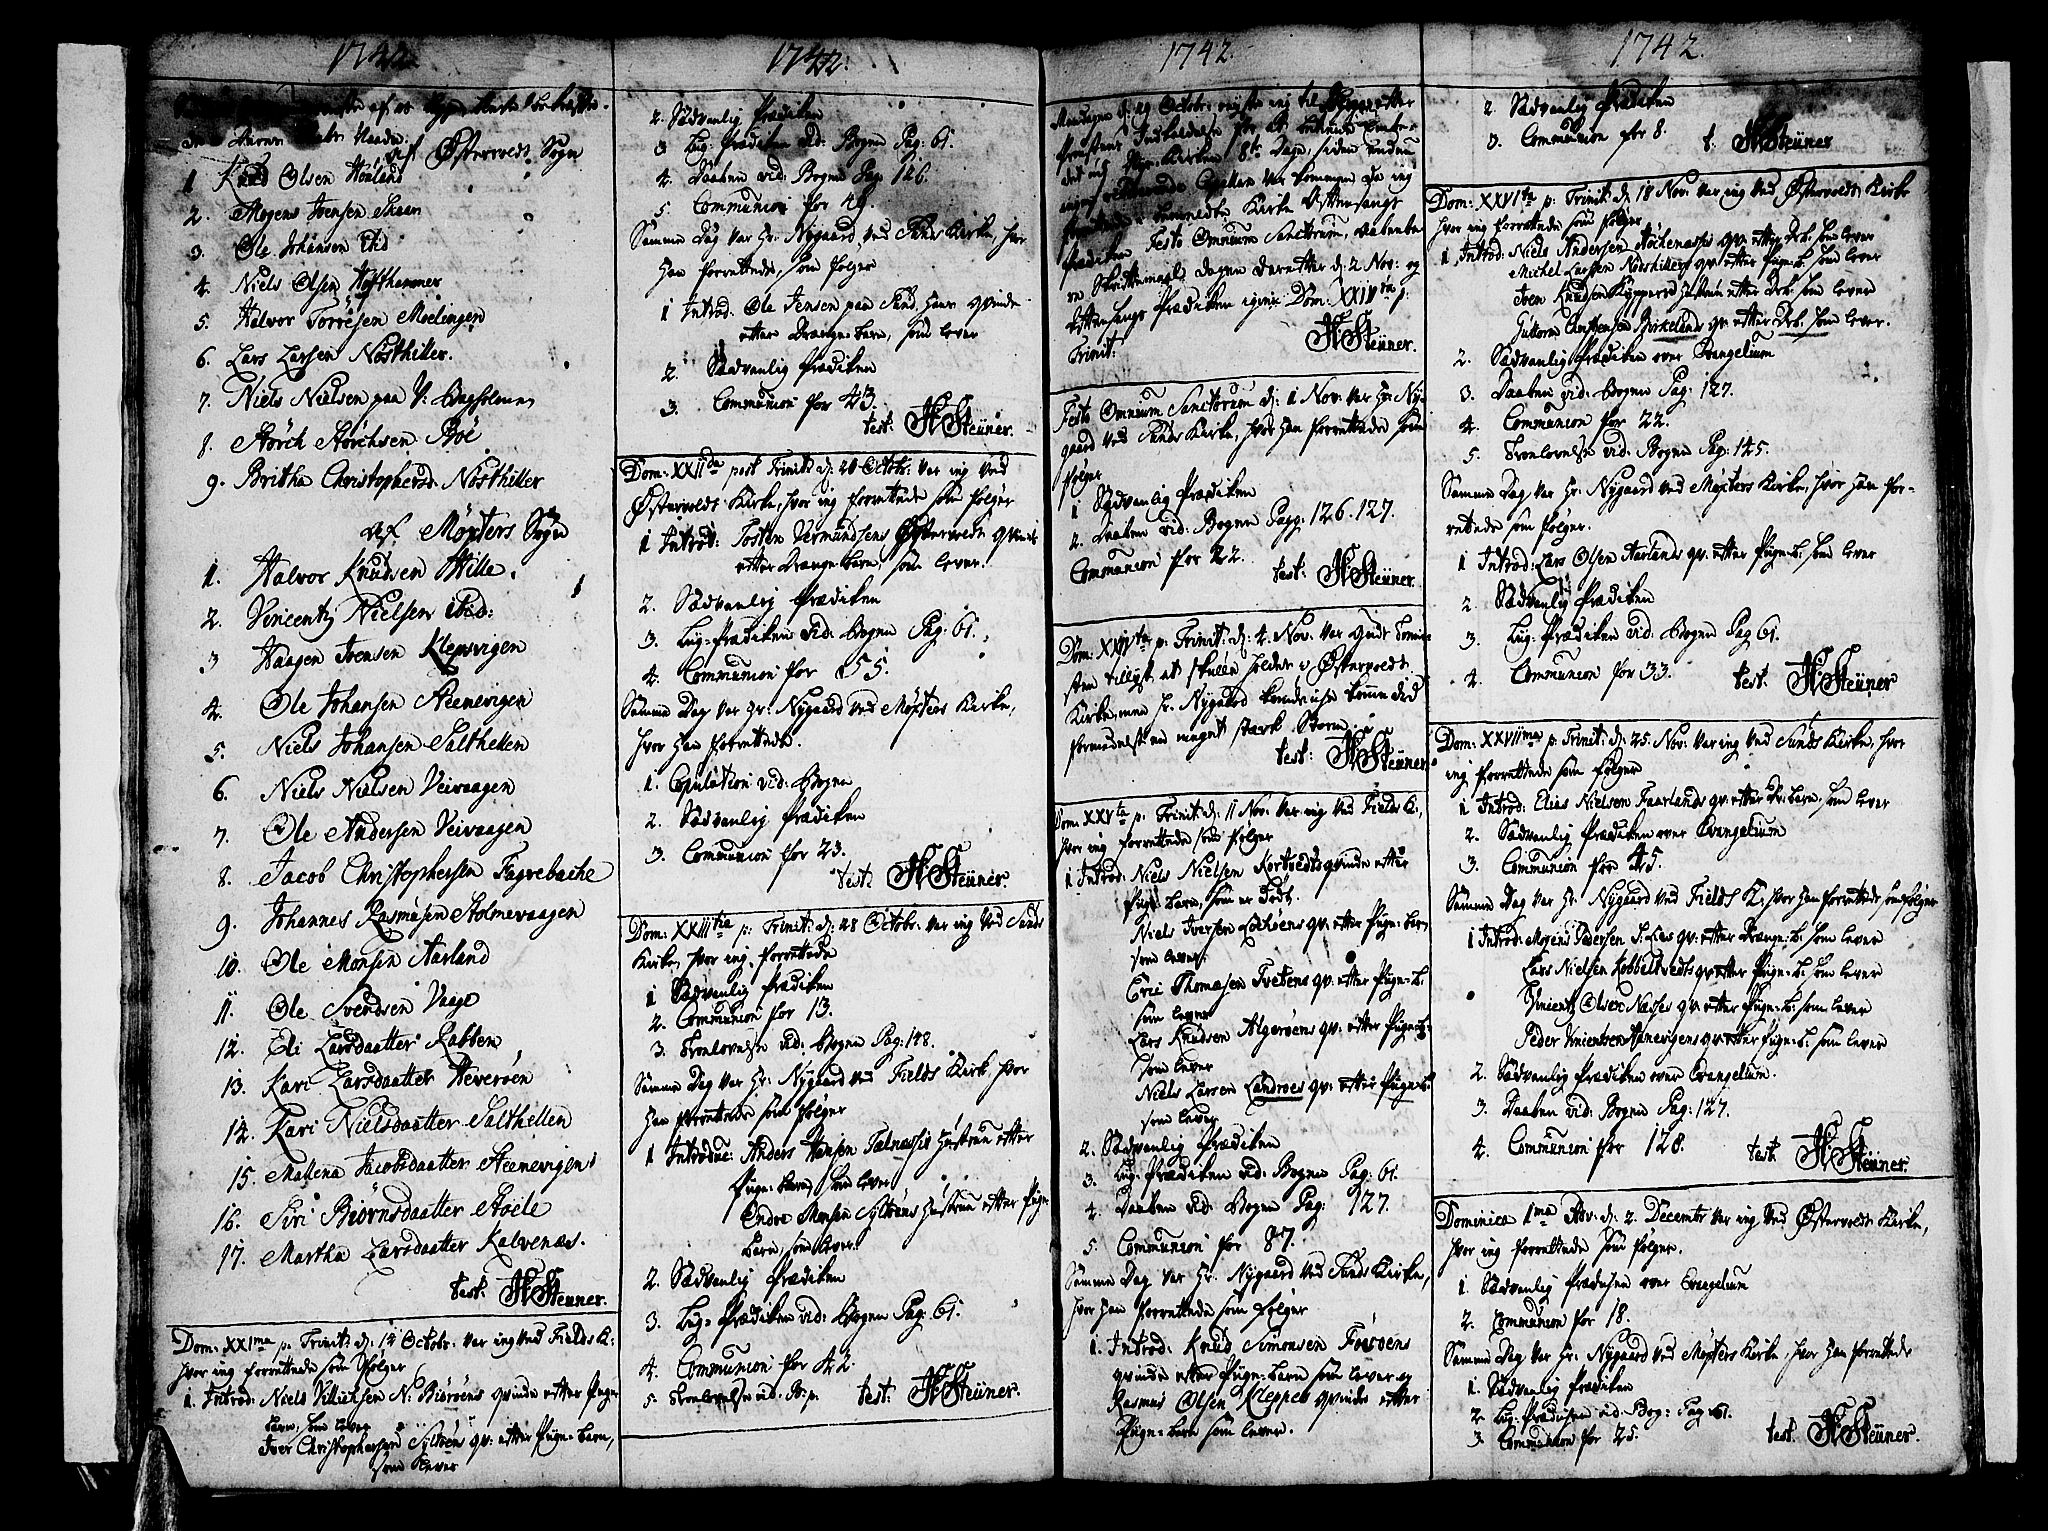 1742.
af
ved Østervolds Sogn
1 Knud Olsen Høuland
2. Mogens Iversen Skaar
3. Ole Johansen ibid
4. Niels Olsen Høfthammer
5. Halvor Torresen Møelingen
6. Lars Larsen Nøsthiller.
7. Niels Nielsen paa V: Bagholmen
8. Størch Størchsen Böe
9. Britha Christophersd. Nøsthiller
ved Møxters Sogn
1. Halvor Knudsen Hille.
2. Vincentz Nielsen ibid:
3 Haagen Ivensen Klepsvigen
4. Ole Johansen Steenevigen
5. Niels Johansen Salthellen
6. Niels Nielsen Veivaagen
7. Ole Andersen Veivaagen
8. Jacob Christophersen Fagrebache
9. Johannes Rasmusen Stolmevaagen
10. Ole Monsen Aarland
11. Ole Svendsen Vaage
12. Eli Larsdaatter Kobben
13. Kari Larsdaatter Heverøen
14. Kari Nielsdaatter Salthellen
15. Mallena Jacobsdaatter Steenevigen
16. Siri Biörnsdaatter Støele
17. Martha Larsdaatter Kalvenæs.
test: H Steüner.
Dom: XXI ma p: Trinit: d: 14 Octobr. var ieg ved Fields K:
hvor ieg forrettede som følger
1. Introd: Niels Villichsen N: Biörøens qvinde efter Pige-
barn, som lever
Iver Christophersen Syltøens qv: efter Pige-barn,
som lever
1742.
2. Sædvanlig Prædiken
3 Lig-Prædiken vid: Bogen Pag: 61.
4. Daaben vid: Bogen Pag: 126.
5. Communion for 49.
Samme Dag var Hr: Nygaard ved Sunds Kirke, hvor
han forrettede, som følger
1 Introd: Ole Jensen paa Sund hans qvinde
efter Drenge-barn, som lever
2. Sædvanlig Prædiken
3. Communion for 43.
test: H Steüner.
Dom: XXII da post Trinit: d: 21 Octobr. var ieg ved
Østervolds Kirke, hvor ieg forrettede som følger
1 Introd: Tosten Vermundsens Østervolds qvinde
efter Drenge-barn, som lever.
2. Sædvanlig Prædiken
3. Lig-Prædiken vid: Bogen Pag: 61.
4. Communion for 55.
Samme Dag var Hr: Nygaard ved Møxters Kirke,
hvor han forrettede.
1. Copulation vid: Bogen
2. Sædvanlig Prædiken
3. Communion for 23.
test: H Steüner.
Dom: XXIII tia p: Trinit: d: 28 Octobr. var ieg ved Sunds
Kirke, hvor ieg forrettede
1 Sædvanlig Prædiken
2. Communion for 13.
3. Troelovelse vid: Bogen Pag: 148.
Samme Dag var Hr: Nygaard ved Fields Kirk hvor
han forrettede som følger
1 Introduc: Anders Hansen Telnæssis Hustrue efter
Pige-barn, som lever
Endre Monsen Syltøens Hustrue efter Pige-
barn, som lever.
2. Sædvanlig Prædiken
3. Lig-Prædiken vid: Bogen Pag: 61.
4. Communion for 42.
5. Troelovelse vid. B: p.
test: H Steüner.
1742.
Mandagen d: 29 Octobr. reyste ieg til
Festo Omnium Sanctorum,
Skriftemaal Dagen derefter d: 2 Nov: og
Prædiken igien Dom: XXIV ta p:
Trinit:
H Steüner.
Festo Omnium Sanctorum d: 1 Nov: var Hr: Ny-
gaard ved Sunds Kirke, hvor han forrettede som
følger
1 Sædvanlig Prædiken
2. Daaben vid: Bogen Pagg: 126. 127.
Communion for 22.
test: H Steüner.
Dom: XXIV ta p: Trinit: d: 4. Nov. var Guds Tieni-
sten tillyst at skulle holdes i Østervolds
Kirke, men Hr. Nygaard kunde icke komme did
formedelst en meget stærk Storm.
test: H Steüner.
Dom: XXV ta p: Trinit: d: 11 Nov: var ieg ved Fields K:,
hvor ieg forrettede som følger
1 Introd: Niels Nielsen Kortvedts qvinde efter
Pige-barn, som er Død.
Niels Iversen Lochøens qv: efter Pige-barn,
som lever.
Eric Thomasen Tvetens qv: efter Pige-b.
som lever
Lars Knudsen Algerøens qv: efter Pige-b:
som lever
Niels Larsen Landroes qv: efter Pige-b:
som lever
2. Sædvanlig Prædiken
3. Lig-Prædiken vid: Bogen Pag: 61.
4. Daaben vid: Bogen Pag: 127.
5. Communion for 87.
Samme Dag var Hr: Nygaard ved Sunds Kirke,
hvor han forrettede som følger
1. Introd: Knud Simonsen Forøens
qvinde efter Pige-barn som lever og
Rasmus Olsen Kleppes qvinde efter
Pige-barn som lever.
1742.
2. Sædvanlig Prædiken
3. Communion for 8.
t. H Steüner
Dom: XXVI ta p: Trinit: d: 18 Nov: var ieg ved Østervolds Kirke
hvor ieg forrettede som følger
1 Introd: Niels Andersen Støchenæsse qv: efter Drb. som lever
Michel Larsen Nøsthillers qv: efter Pige-b. som lever
Iven Knudsen Kypperes Hustru efter Drb som lever
Guttorm Christensen Birkelands qv: efter Drb. som lever.
2. Sædvanlig Prædiken over Evangelium
3. Daaben vid: Bogen Pag: 127.
4. Communion for 22.
5. Troelovelse vid: Bogen Pag: 145.
Samme Dag var Hr: Nygaard ved Møxters Kirke, hvor han for-
rettede som følger.
1 Introd: Lars Olsen Aarlands qv: efter Pige-b. som lever
2. Sædvanlig Prædiken
3. Lig-Prædiken vid: Bogen Pag 61.
4. Communion for 33.
test. H Steüner
Dom: XXVII ma p: Trinit: d: 25. Nov: var ieg ved Sunds Kirke, hvor
ieg forrettede som følger
1 Introd: Elias Nielsen Faarlands qv: efter Dr: barn, som lever
2. Sædvanlig Prædiken over Evangelium
3. Communion for 45.
Samme Dag var Hr: Nygaard ved Fields K:, hvor han forrettede, som følger
1 Introd: Mogens Pedersen S: Lies qv: efter Drenge-b. som lever
Lars Nielsen Kobbeltvedts qv: efter Pige-b. som lever
Vincentz Olsen Næsses qv: efter Pige-b. som lever
Peder Vincentsen Hanevigens qv: efter Pige-b. som lever
2. Sædvanlig Prædiken over Evangelium.
3. Daaben vid: Bogen Pag: 127.
4. Communion for 128.
test. H Steüner.
Dominica 1 ma Adv: d: 2. Decembr var ieg ved Østervolds Kirke,
hvor ieg forrettede som følger.
1. Sædvanlig Prædiken over Evangelium
2. Communion for 18.
Samme Dag var Hr: Nygaard ved Møxters Kirke, hvor han forrettede
1. Sædvanlig Prædiken
2. Lig-Prædiken vid. Bog: Pag 61.
3. Communion for 25.
test. H Steüner.